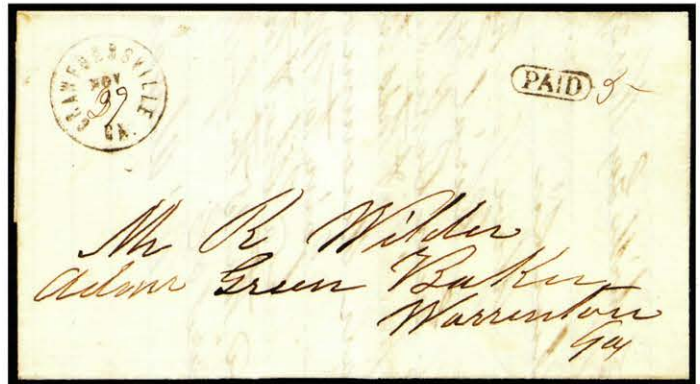 CRAWFORDSVILLE
NOV
GA.
PAID 5
Mr R Wilder
Admr Green Baker
Warrenton
Ga